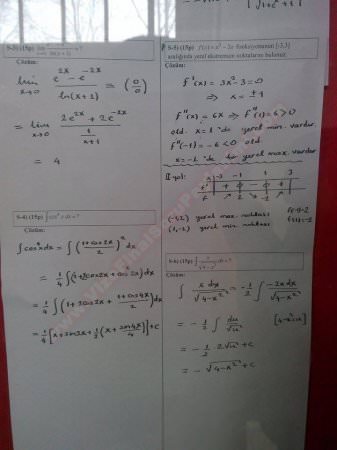 S-3) (15p) lim = ?
Çözüm:
lim x→0 e^{2x} - e^{-2x} / ln(x+1) = (0/0)
= lim x→0 2e^{2x} + 2e^{-2x} / 1/(x+1)
= 4
S-4) (15p) ∫cos⁴x dx = ?
Çözüm:
∫cos⁴x dx = ∫(1+cos2x / 2)² dx
= 1/4 ∫(1+2cos2x + cos²2x) dx
= 1/4 ∫(1+2cos2x + 1+cos4x / 2) dx
= 1/4 [x + sin2x + 1/2 (x + sin4x / 4)] + c
S-5) (15p) f(x) = x³ - 3x fonksiyonunun [-3,3]
aralığında yerel ekstremum noktalarını bulunuz.
Çözüm:
f'(x) = 3x² - 3 = 0
⇒ x = ±1
f''(x) = 6x ⇒ f''(1) = 6 > 0
old. x=1 'de yerel min. vardır.
f''(-1) = -6 < 0 old.
x = -1 'de bir yerel max. vardır.
II yol:
x -3 -1 1 3
f' + 0 - 0 +
f ↗ 2 ↘ -2 ↗
(-1,2) yerel max. noktası
(1,-2) yerel min. noktası
f(-1)=2
f(1)=-2
S-6) (15p) ∫ x / √(4-x²) dx = ?
Çözüm:
∫ x dx / √(4-x²) = -1/2 ∫ -2x dx / √(4-x²)
= -1/2 ∫ du / √u [4-x²=u]
= -1/2 · 2√u + c
= -√(4-x²) + c